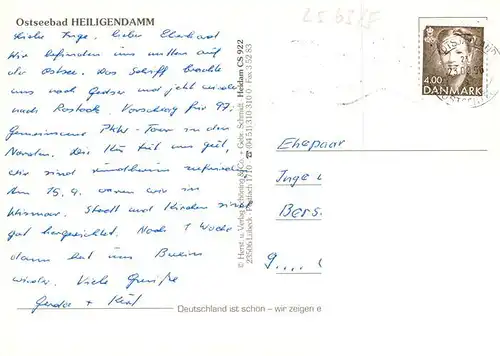 Ostseebad HEILIGENDAMM
Liebe Inge, lieber Eberhard
Wir befinden uns mitten auf
der Ostsee. Das Schiff brachte
uns nach Gedser und jetzt wieder
nach Rostock. Vorschlag für 97:
Gemeinsame PKW-Tour in den
Norden. Die Kur tut uns gut,
wir sind rundherum zufrieden.
Am 15.9. waren wir in
Wismar. Stadt und Kirchen sind
gut hergerichtet. Noch 1 Woche
dann hat uns Berlin
wieder. Viele Grüße
Gerda + Karl
© Herst. u. Verlag Schöning & Co. + Gebr. Schmidt
Heidam CS 922
23506 Lübeck · Postfach 1710 ☎ (0451) 310 310 0 · Fax 3 52 83
4.00
DANMARK
Ehepaar
Inge
Bers.
9....
Deutschland ist schön – wir zeigen e